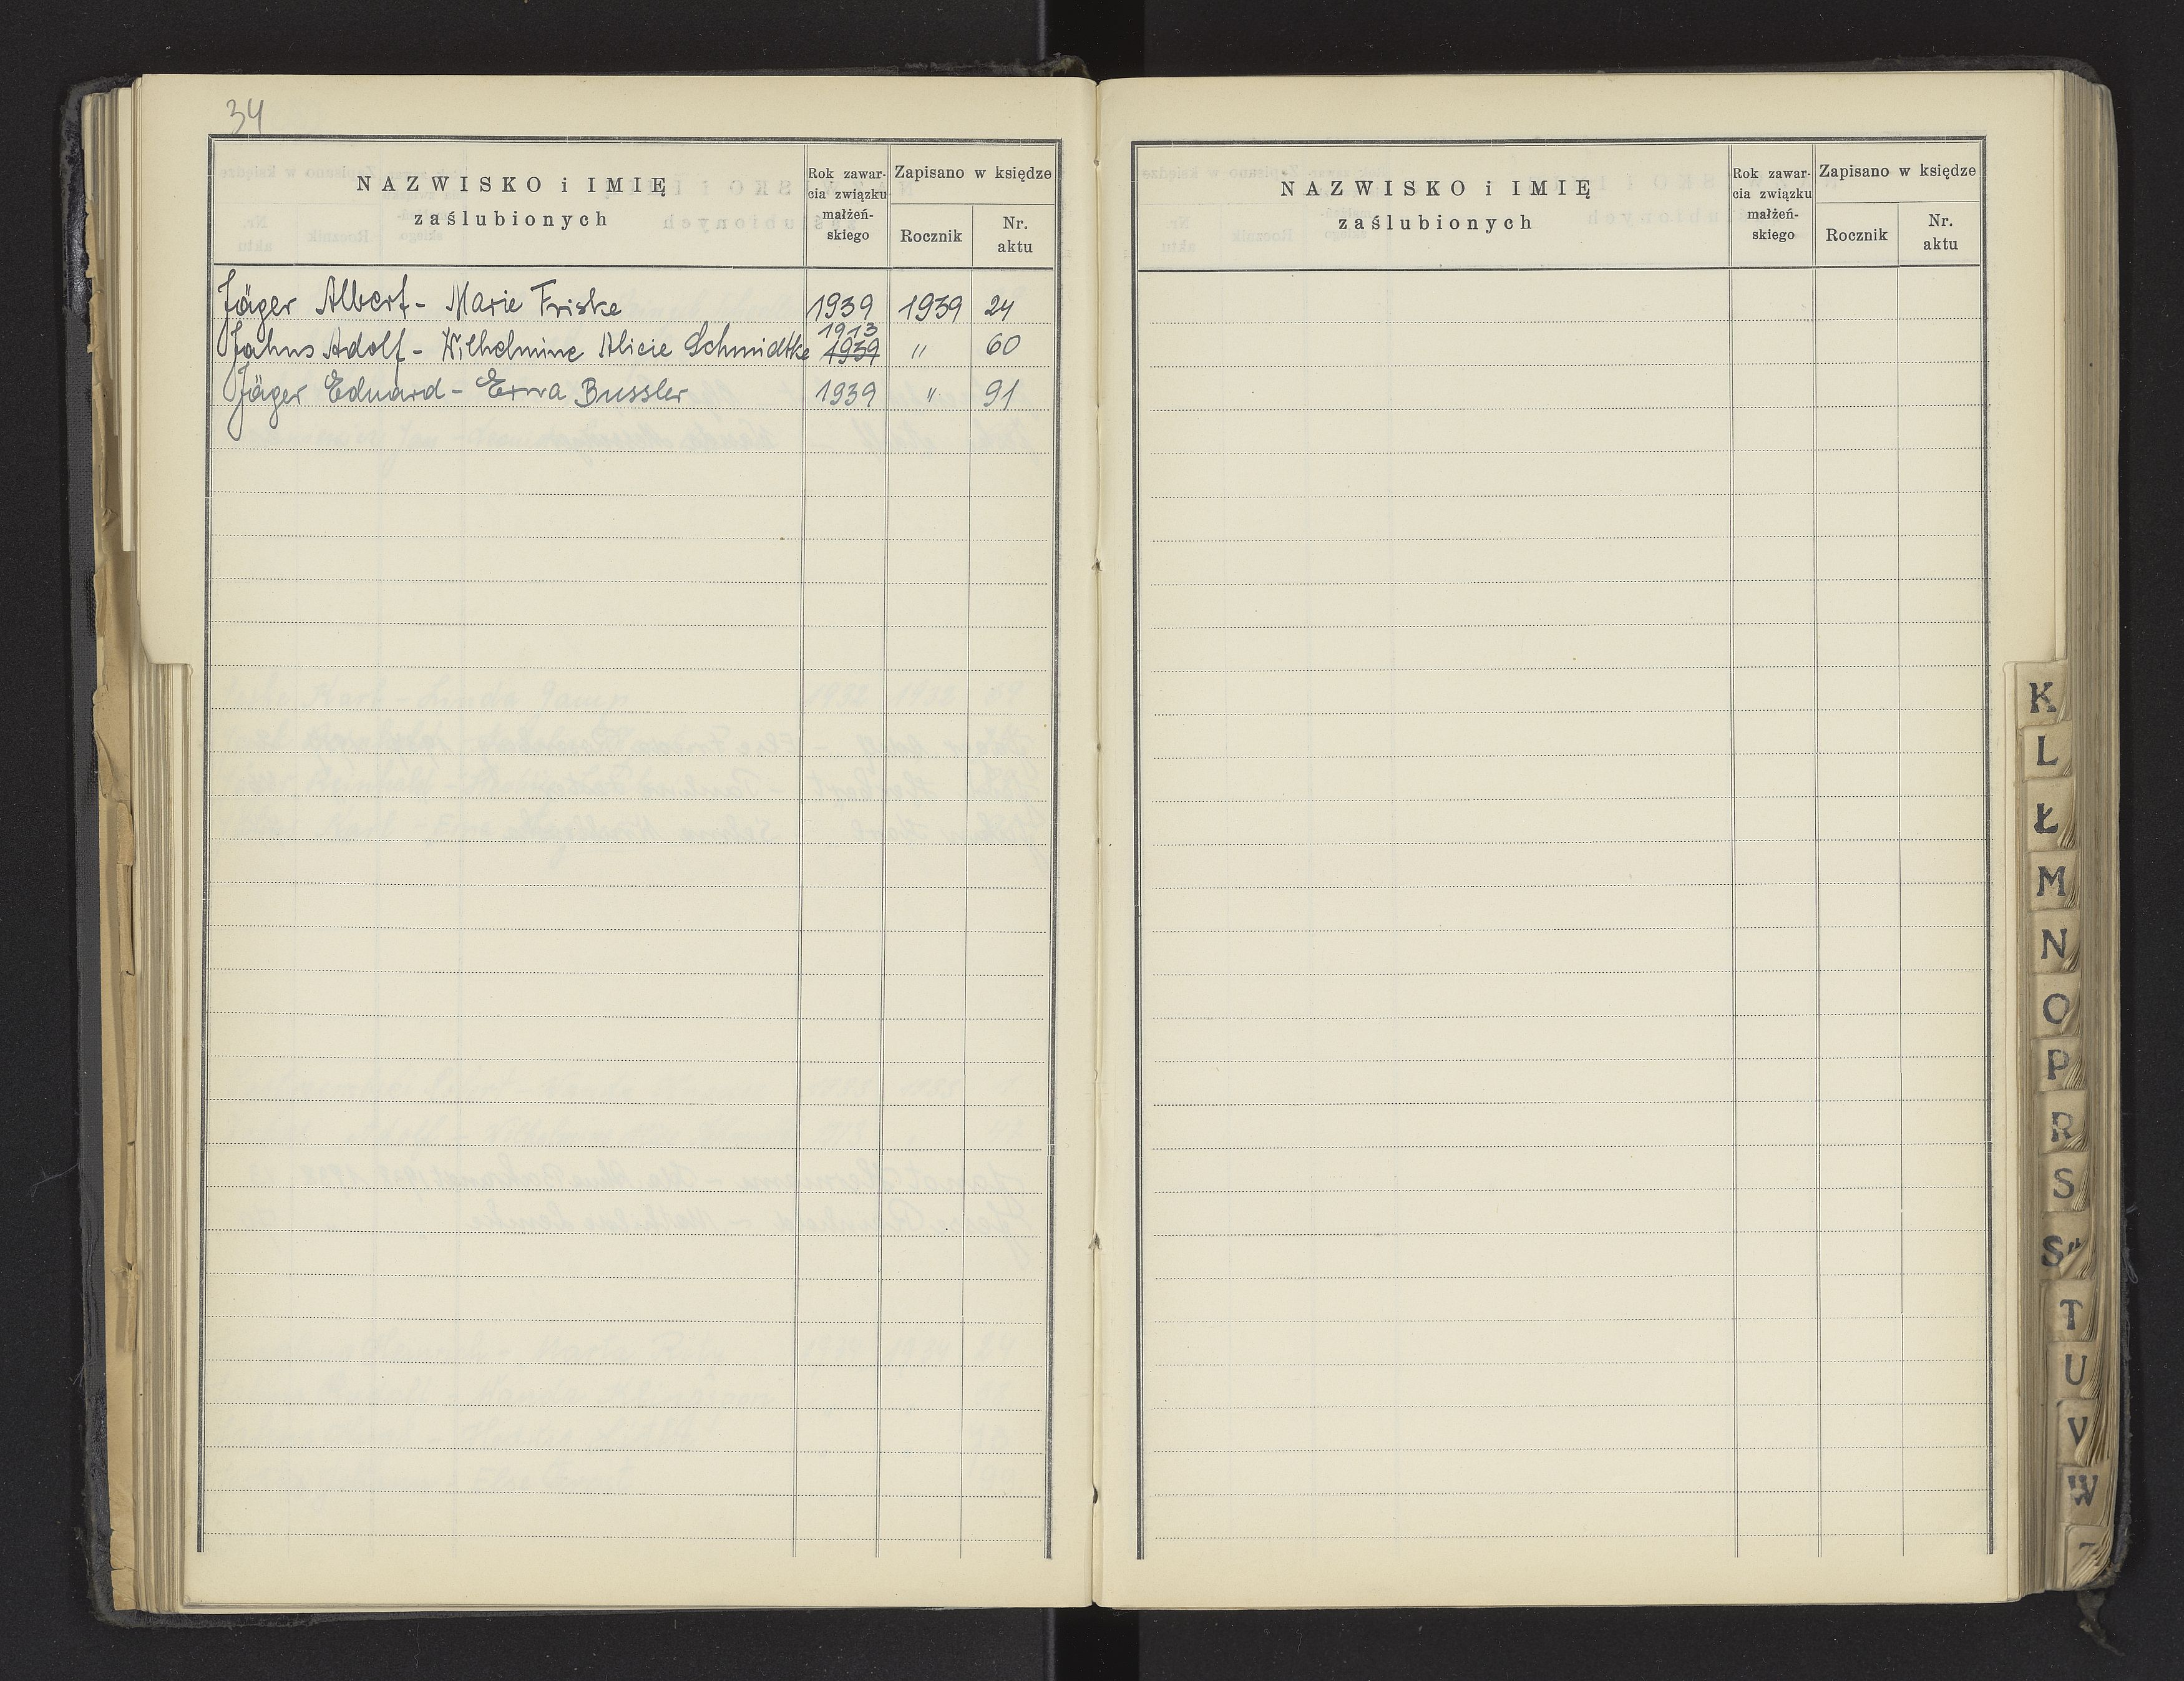 34
NAZWISKO i IMIĘ
zaślubionych
Rok zawar-
cia związku
małżeń-
skiego
Zapisano w księdze
Rocznik
Nr.
aktu
Jäger Albert - Marie Friske 1939 1939 24
1913
Jahns Adolf - Wilhelmine Alicie Schmidtke 1939 " 60
Jäger Eduard - Erna Bussler 1939 " 91
NAZWISKO i IMIĘ
zaślubionych
Rok zawar-
cia związku
małżeń-
skiego
Zapisano w księdze
Rocznik
Nr.
aktu
K
L
Ł
M
N
O
P
R
S
Ś
T
U
V
W